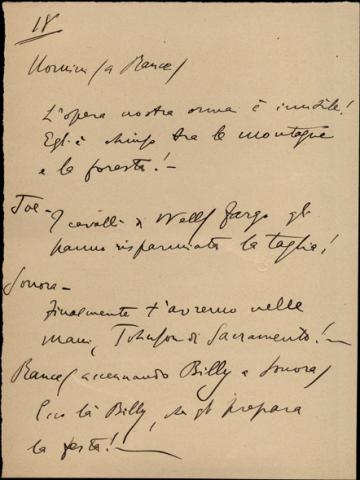 18
Uomini (a Rance)
L'opera nostra ormai è inutile!
Egli è chiuso tra le montagne
e la foresta! —
Joe —
I cavalli di Wells Fargo gli
hanno risparmiata la taglia!
Sonora —
Finalmente t'avremo nelle
mani, Johnson di Sacramento! —
Rance (accennando Billy a Sonora)
Ecco là Billy, che gli prepara
la festa! —